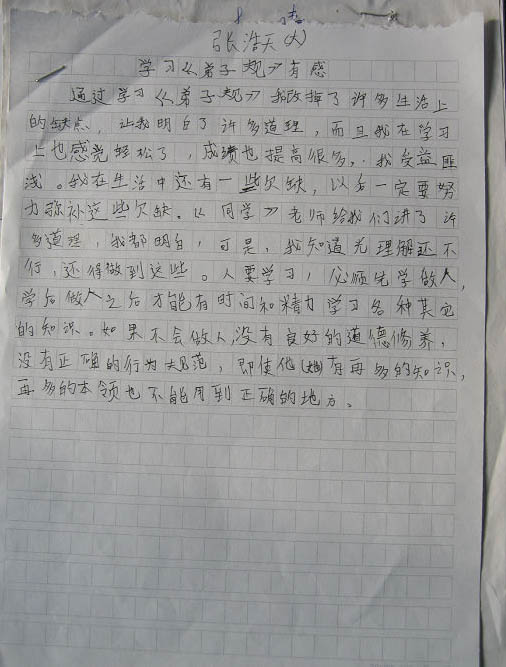 张浩天(大)
学习《弟子规》有感
通过学习《弟子规》我改掉了许多生活上
的缺点，让我明白了许多道理，而且我在学习
上也感觉轻松了，成绩也提高很多，我受益匪
浅。我在生活中还有一些欠缺，以后一定要努
力弥补这些欠缺。《同学》老师给我们讲了许
多道理，我都明白，可是，我知道光理解还不
行，还得做到这些。人要学习，必须先学做人，
学后做人之后才能有时间和精力学习各种其它
的知识。如果不会做人，没有良好的道德修养，
没有正确的行为规范，即使他(她)有再多的知识，
再多的本领也不能用到正确的地方。